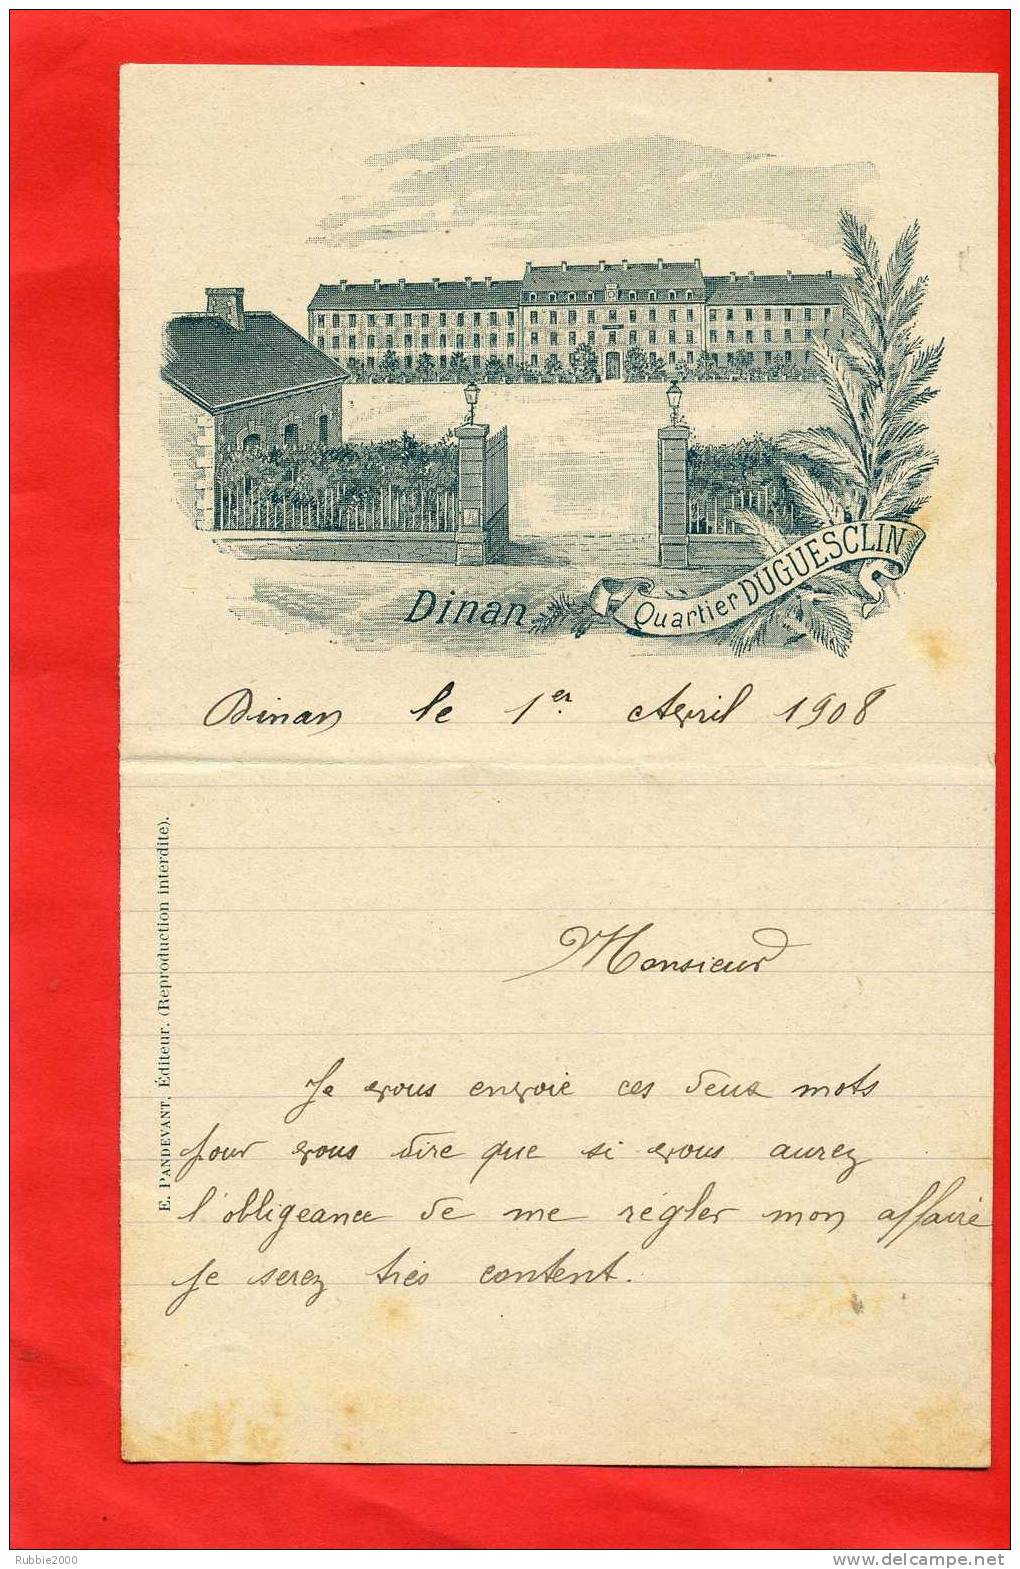 Dinan
Quartier DUGUESCLIN
Dinan le 1er Avril 1908
E. PANDEVANT, Éditeur. (Reproduction interdite).
Monsieur
Je vous envoie ces deux mots
pour vous dire que si vous aurez
l'obligeance de me régler mon affaire
je serez très content.
Rubbie2000
www.delcampe.net